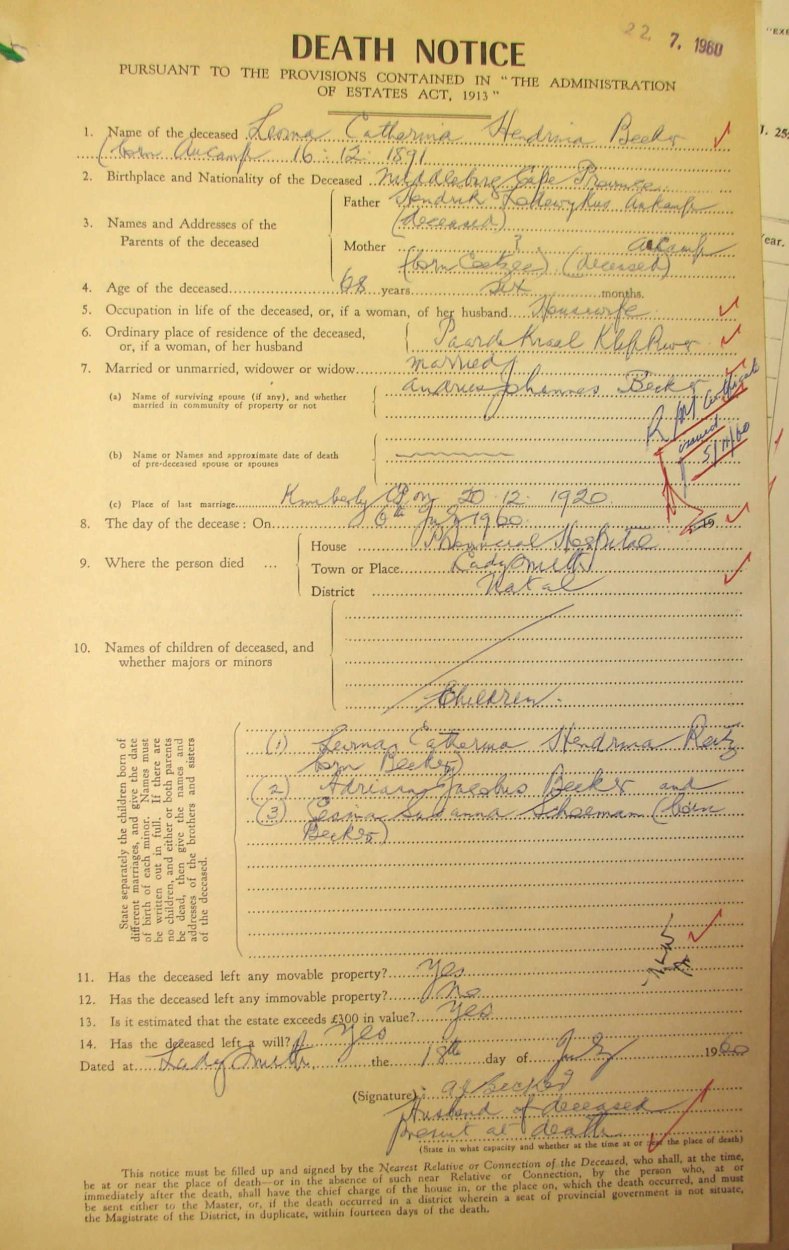 22. 7. 1960
DEATH NOTICE
PURSUANT TO THE PROVISIONS CONTAINED IN "THE ADMINISTRATION
OF ESTATES ACT, 1913"
1. Name of the deceased Leonna Catharina Hendrina Becker
(born Aucamp 16 : 12 : 1891
2. Birthplace and Nationality of the Deceased Middelburg Cape Province
3. Names and Addresses of the
Parents of the deceased
Father Hendrik Lodewykus Aukamp
(deceased)
Mother ? Aucamp
(born Coetzee) (deceased)
4. Age of the deceased 68 years six months.
5. Occupation in life of the deceased, or, if a woman, of her husband Housewife
6. Ordinary place of residence of the deceased,
or, if a woman, of her husband
Paarde Kraal Klip River
7. Married or unmarried, widower or widow married
(a) Name of surviving spouse (if any), and whether
married in community of property or not
Andries Johannes Becker
issued
5/ /60
(b) Name or Names and approximate date of death
of pre-deceased spouse or spouses
(c) Place of last marriage Kimberly CP on 20 : 12 : 1920
8. The day of the decease : On 6th July 1960
9. Where the person died ...
House Provincial Hospital
Town or Place Ladysmith
District Natal
10. Names of children of deceased, and
whether majors or minors
Children.
State separately the children born of
different marriages, and give the date
of birth of each minor. Names must
be written out in full. If there are
no children, and either or both parents
be dead, then give the names and
addresses of the brothers and sisters
of the deceased.
(1) Catherina Hendrina Reitz
born Becker)
(2) Adriaan Jacobus Becker and
(3) Susanna Schoeman (born
Becker)
11. Has the deceased left any movable property? Yes
12. Has the deceased left any immovable property? No
13. Is it estimated that the estate exceeds £300 in value? Yes
14. Has the deceased left a will? Yes
Dated at Lady Smith, the 18th day of July 1960
(Signature) : AJ Becker
Husband of deceased
present at death
(State in what capacity and whether at the time at or near the place of death)
This notice must be filled up and signed by the Nearest Relative or Connection of the Deceased, who shall, at the time,
be at or near the place of death—or in the absence of such near Relative or Connection, by the person who, at or
immediately after the death, shall have the chief charge of the house in, or the place on, which the death occurred, and must
be sent either to the Master, or, if the death occurred in a district wherein a seat of provincial government is not situate,
the Magistrate of the District, in duplicate, within fourteen days of the death.